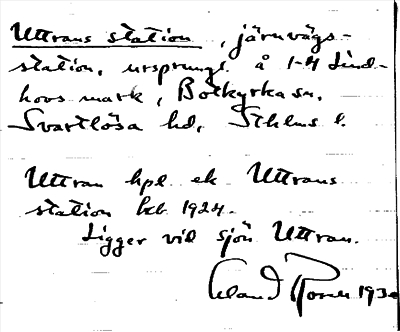 Uttrans station, järnvägs-
station, ursprungl. å 1-4 Lind-
hovs mark, Botkyrka sn.
Svartlösa hd, Sthlms l.
Uttran hpl ek Uttrans
station kb. 1924.
Ligger vid sjön Uttran.
Erland 1930